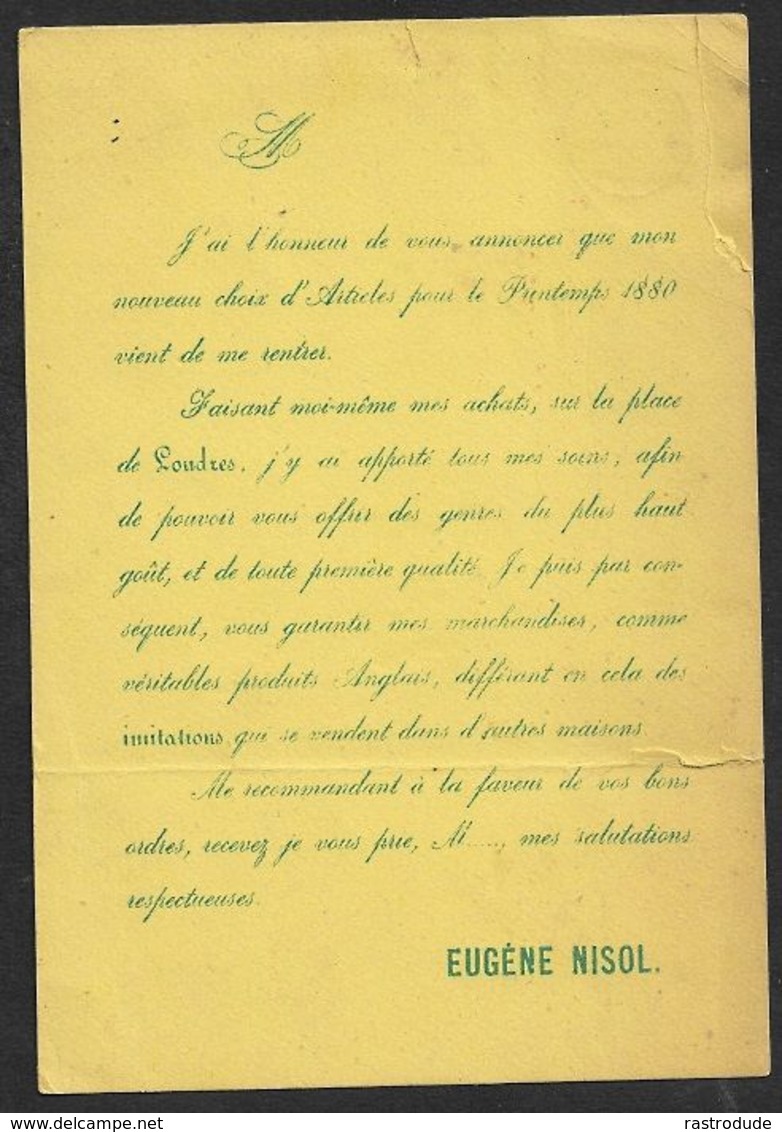 M
J'ai l'honneur de vous annoncer que mon
nouveau choix d'Articles pour le Printemps 1880
vient de me rentrer.
Faisant moi-même mes achats, sur la place
de Londres, j'y ai apporté tous mes soins, afin
de pouvoir vous offrir des genres du plus haut
goût, et de toute première qualité. Je puis par con-
séquent, vous garantir mes marchandises, comme
véritables produits Anglais, différant en cela des
imitations qui se vendent dans d'autres maisons.
Me recommandant à la faveur de vos bons
ordres, recevez je vous prie, M....., mes salutations
respectueuses.
EUGÈNE NISOL.
www.delcampe.net
rastrodude